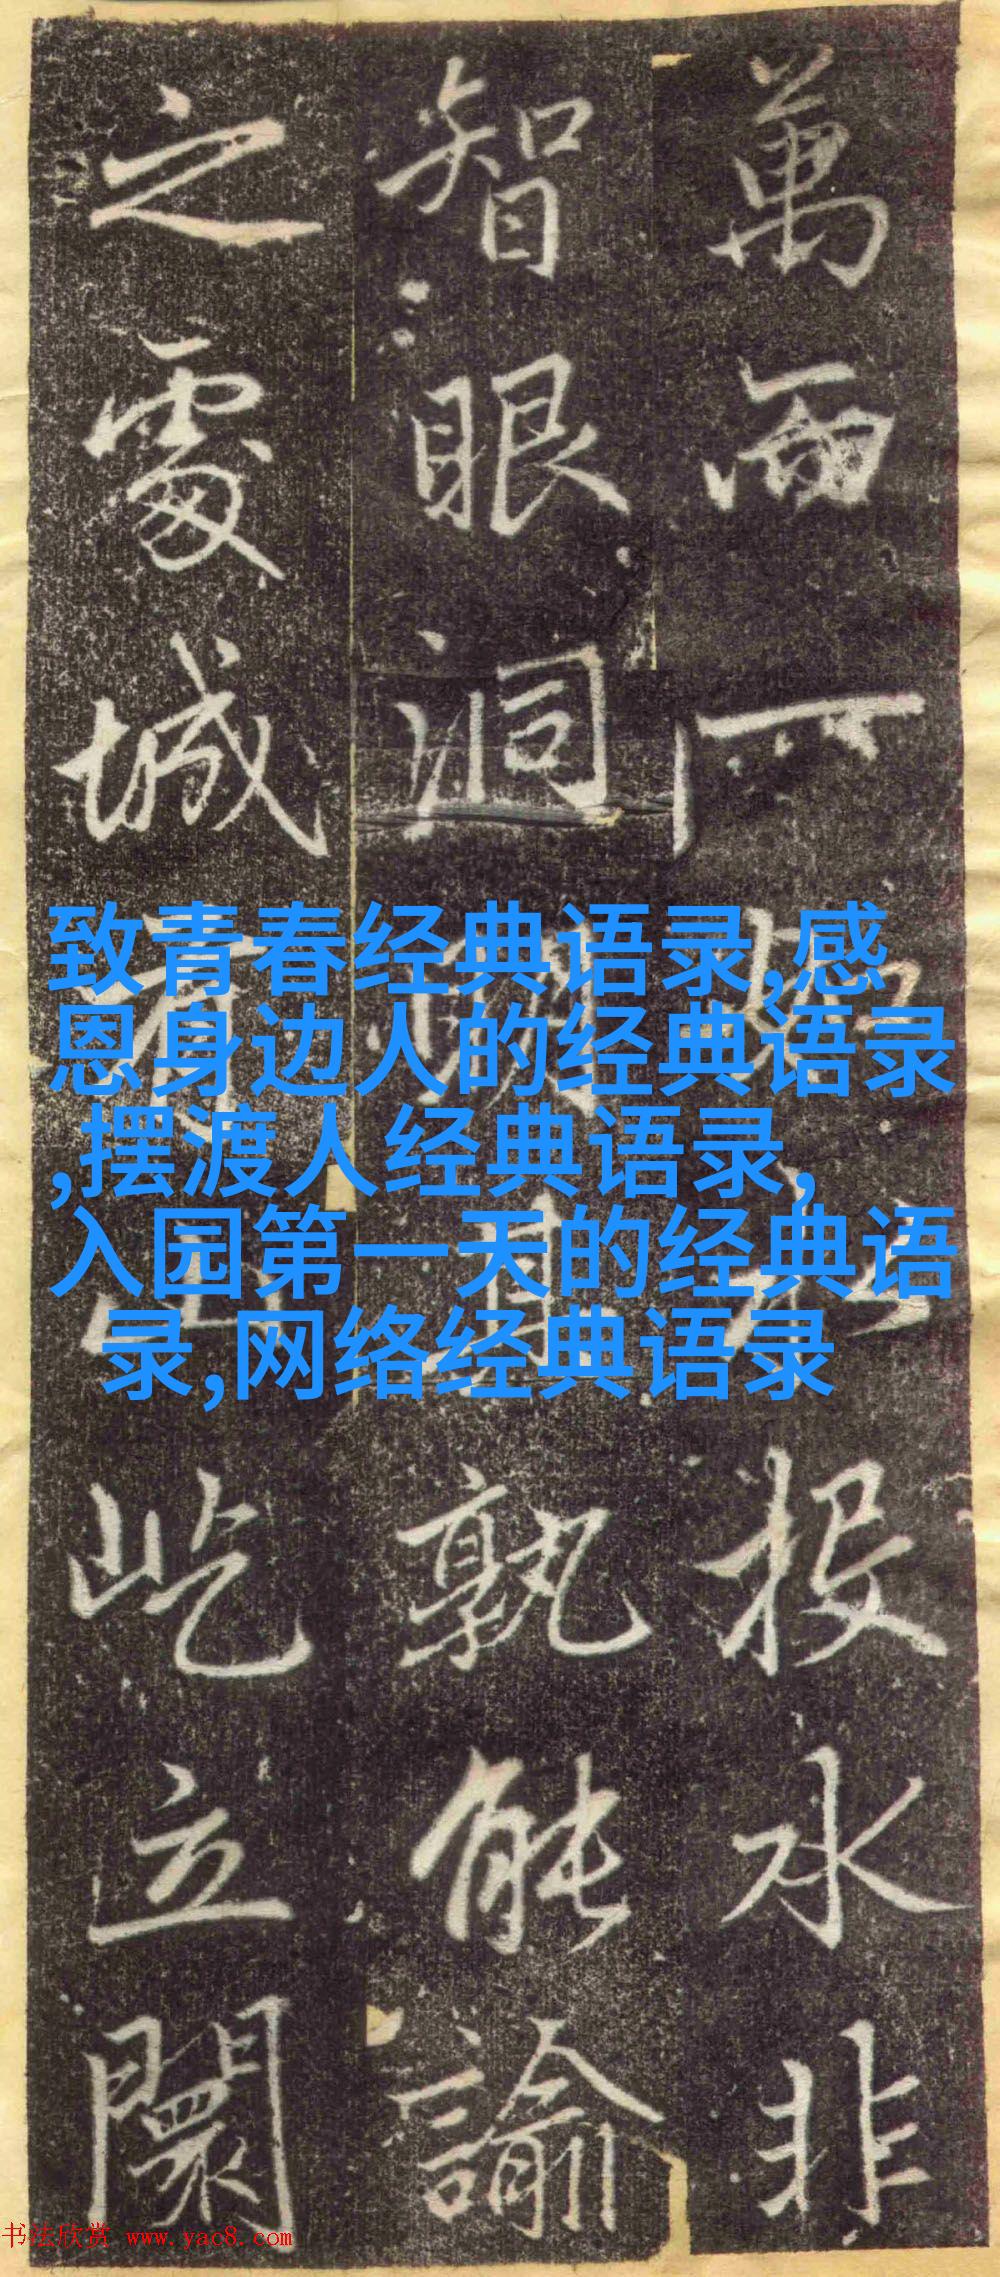 萬而投水非
智眼洞孰能諭
之處城屹立闤
致青春经典语录,感
恩身边人的经典语录
,摆渡人经典语录,
入园第一天的经典语
录,网络经典语录
书法欣赏 www.yac8.com